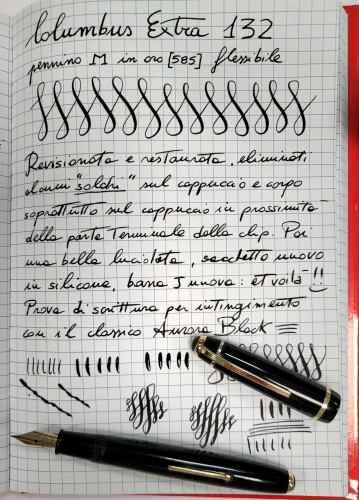 Columbus Extra 132
pennino M in oro [585] flessibile
Revisionata e restaurata, eliminati
alcuni "solchi" sul cappuccio e corpo
soprattutto sul cappuccio in prossimità
della parte terminale della clip. Poi
una bella lucidata, sacchetto nuovo
in silicone, barra J nuova: et voilà!!
Prova di scrittura per intingimento
con il classico Aurora Black